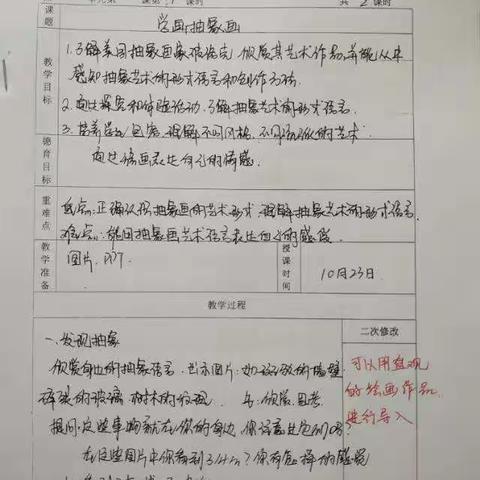 课时
共 2 课时
课题
学画抽象画
教学目标
1.了解美国抽象画家波洛克,欣赏其艺术作品,并能从中
感知抽象艺术的形式语言和创作方法.
2.通过探究和体验活动,了解抽象艺术的形式语言.
3.培养学生包容、理解不同风格、不同流派的艺术.
德育目标
通过绘画表达自己的情感.
重难点
重点:正确认识抽象画的艺术形式,理解抽象艺术的形式语言.
难点:能用抽象画艺术语言表达自己的感受
教学准备
图片、PPT.
授课时间
10月23日.
教学过程
二次修改
一、发现抽象
欣赏身边的抽象语言,出示图片:如斑驳的墙壁
碎裂的玻璃 树木的纹理. 生:欣赏、思考.
提问:这些事物就在你的身边,你注意过它们吗?
在这些图片中你看到了什么?你有怎样的感受
可以用直观
的绘画作品
进行导入